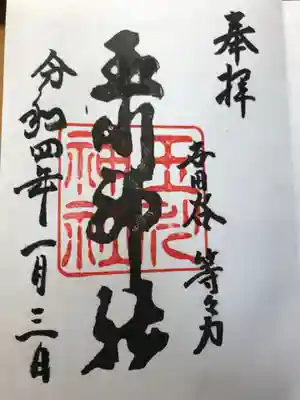 奉拝
世田谷 等々力
玉川神社
玉川神社
令和四年一月三日